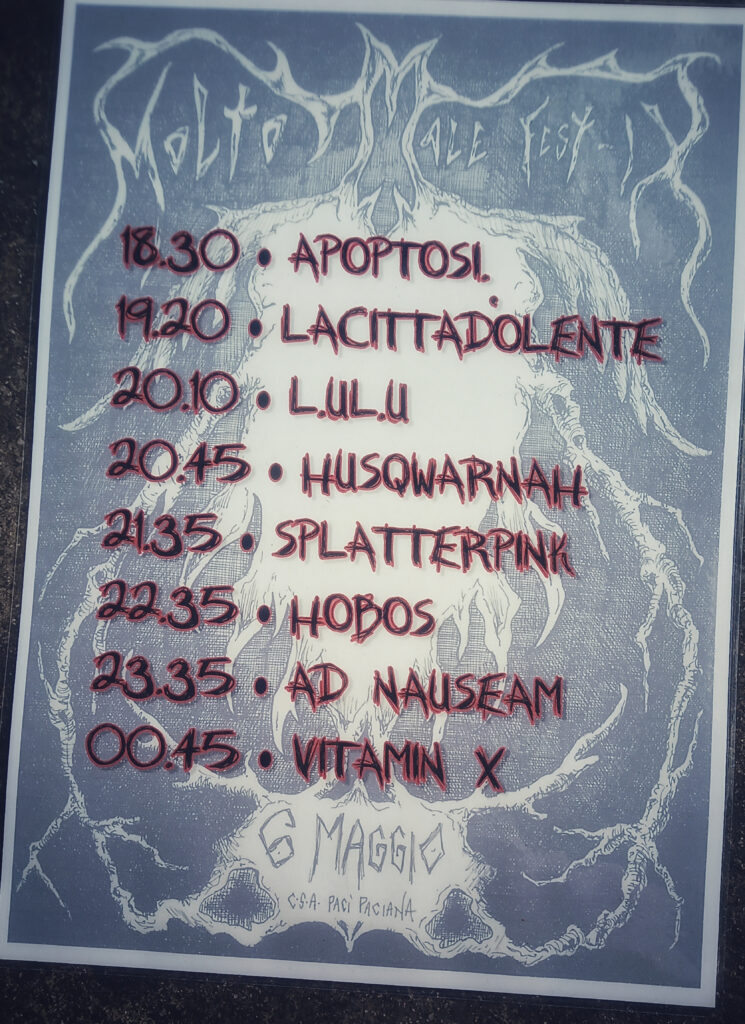 Molto Male Fest - IX
18.30 • APOPTOSI.
19.20 • LACITTADOLENTE
20.10 • L.UL.U
20.45 • HUSQWARNAH
21.35 • SPLATTERPINK
22.35 • HOBOS
23.35 • AD NAUSEAM
00.45 • VITAMIN X
6 MAGGIO
C.S.A. PACÌ PACIANA